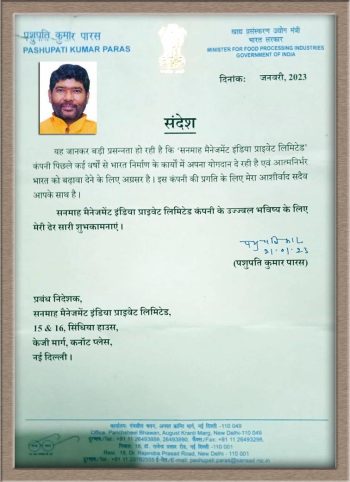 पशुपति कुमार पारस
PASHUPATI KUMAR PARAS
खाद्य प्रसंस्करण उद्योग मंत्री
भारत सरकार
MINISTER FOR FOOD PROCESSING INDUSTRIES
GOVERNMENT OF INDIA
दिनांक: जनवरी, 2023
संदेश
यह जानकर बड़ी प्रसन्नता हो रही है कि 'सनमाह मैनेजमेंट इंडिया प्राइवेट लिमिटेड'
कंपनी पिछले कई वर्षों से भारत निर्माण के कार्यो में अपना योगदान दे रही है एवं आत्मनिर्भर
भारत को बढ़ावा देने के लिए अग्रसर है। इस कंपनी की प्रगति के लिए मेरा आशीर्वाद सदैव
आपके साथ है।
सनमाह मैनेजमेंट इंडिया प्राइवेट लिमिटेड कंपनी के उज्ज्वल भविष्य के लिए
मेरी ढेर सारी शुभकामनाएं।
21.01.23
(पशुपति कुमार पारस)
प्रबंध निदेशक,
सनमाह मैनेजमेंट इंडिया प्राइवेट लिमिटेड,
15 & 16, सिंधिया हाउस,
केजी मार्ग, कनॉट प्लेस,
नई दिल्ली।
कार्यालय: पंचशील भवन, अगस्त क्रान्ति मार्ग, नई दिल्ली -110 049
Office: Panchsheel Bhawan, August Kranti Marg, New Delhi-110 049
110 001
Resi. 18, Dr. Rajendra Prasad Road, New Delhi-110 001